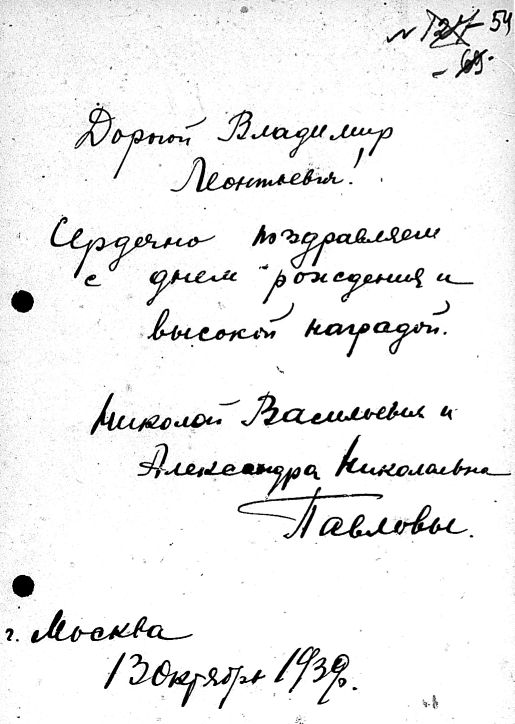 54
Дорогой Владимир
Леонтьевич!
Сердечно поздравляем
с днем рождения и
высокой наградой.
Николай Васильевич и
Александра Николаевна
Павловы.
г. Москва
13 октября 1939г.